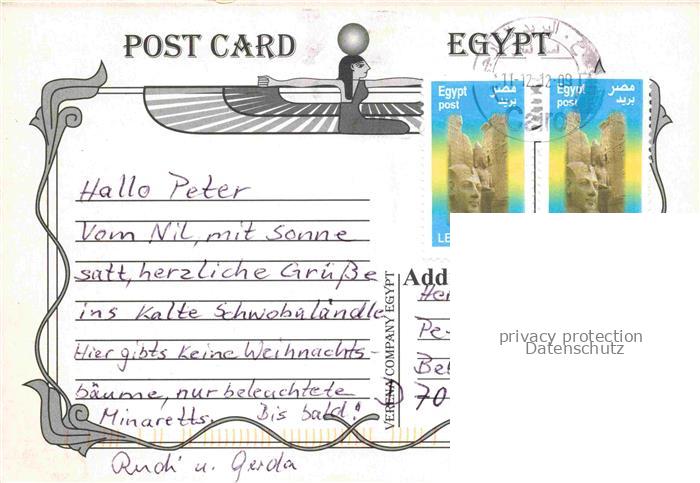 POST CARD EGYPT
11-12-12-09
Cairo
Egypt post مصر بريد
Egypt post مصر بريد
LE
Hallo Peter
Vom Nil, mit Sonne
satt, herzliche Grüße
ins kalte Schwobaländle
Hier gibts keine Weihnachts-
bäume, nur beleuchtete
Minaretts. Bis bald!
Rudi u. Gerda
VERENA COMPANY EGYPT
Add
Her
Pe
Be
70
privacy protection
Datenschutz